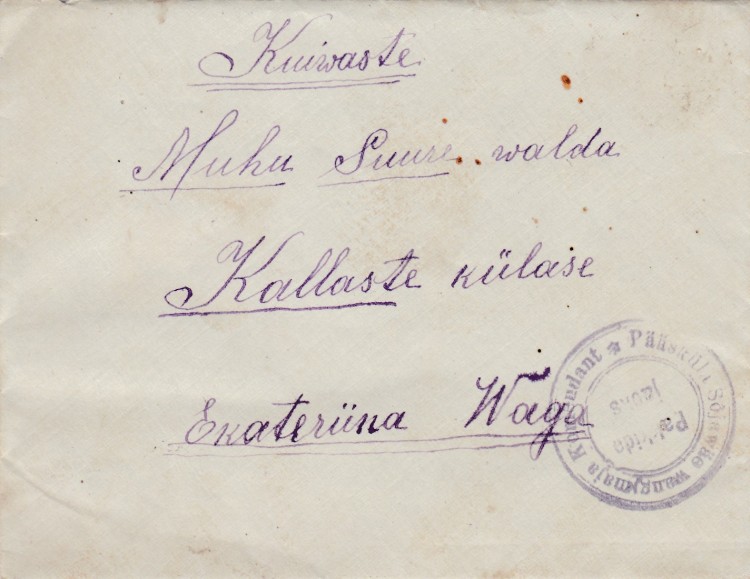 Kuiwaste
Muhu Suure walda
Kallaste külase
Ekateriina Waga
Pääsküla Sõjawäe wangimaja Komendant
Pakkide
jaoks